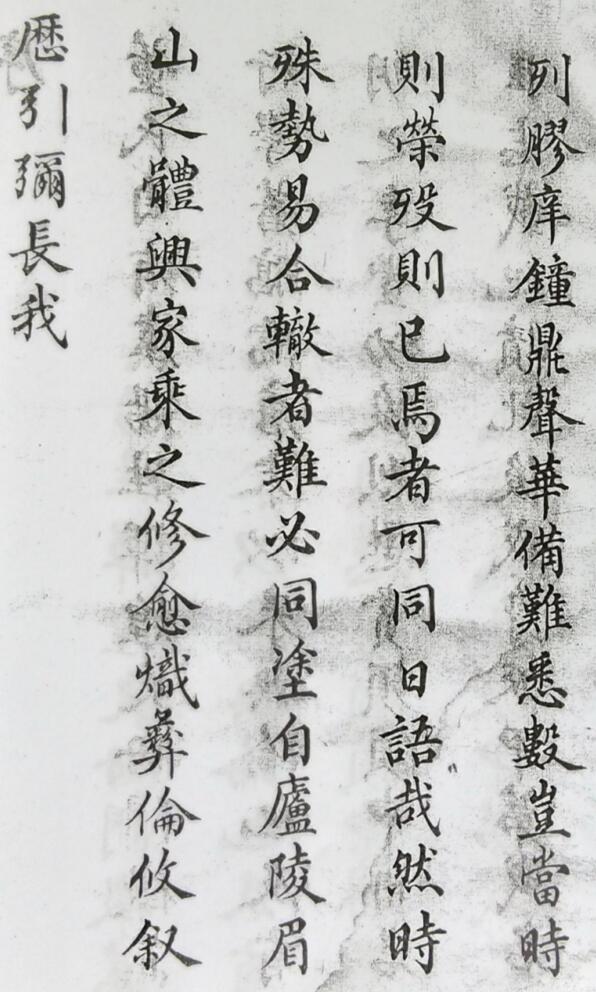 列膠庠鐘鼎聲華備難悉數豈當時
則榮歿則已焉者可同日語哉然時
殊勢易合轍者難必同塗自廬陵眉
山之體興家乘之修愈熾彝倫攸叙
歴引彌長我